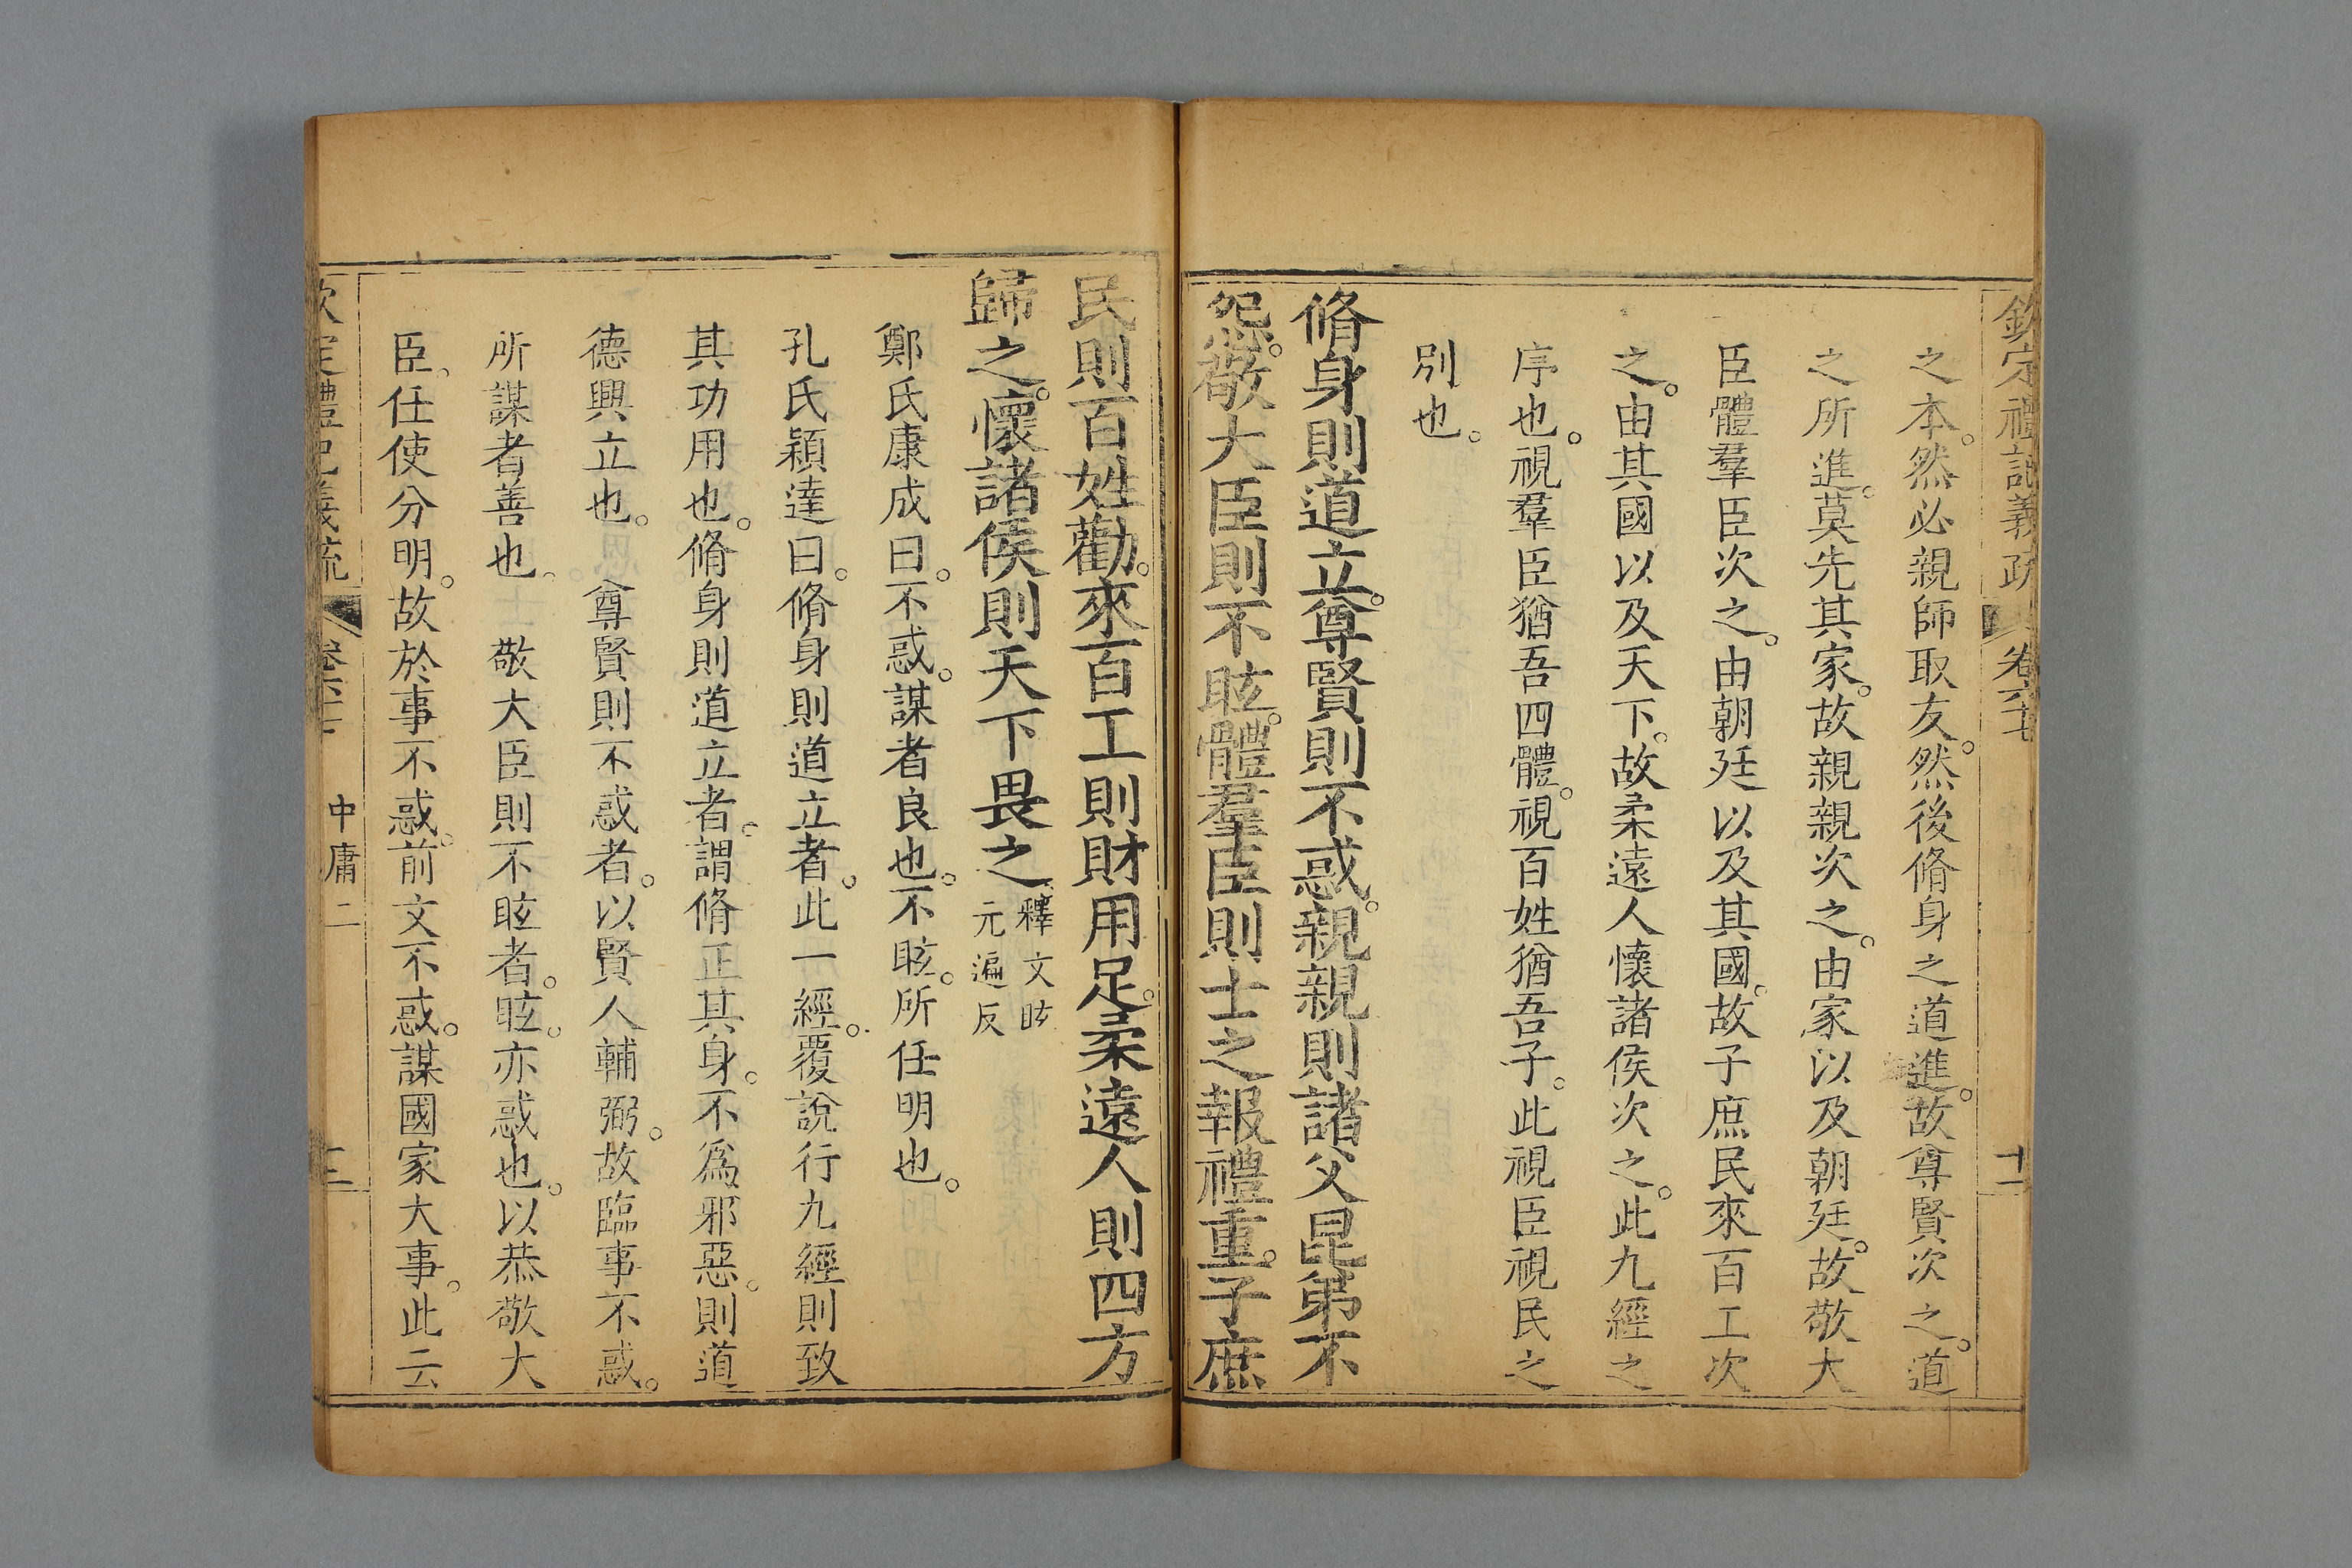 欽定禮記義疏 卷六十七 十一
之本。然必親師取友。然後脩身之道進。故尊賢次之。道
之所進。莫先其家。故親親次之。由家以及朝廷。故敬大
臣體羣臣次之。由朝廷以及其國。故子庶民來百工次
之。由其國以及天下。故柔遠人懷諸侯次之。此九經之
序也。視羣臣猶吾四體。視百姓猶吾子。此視臣視民之
別也。
脩身則道立。尊賢則不惑。親親則諸父昆弟不
怨。敬大臣則不眩。體羣臣則士之報禮重。子庶
民則百姓勸。來百工則財用足。柔遠人則四方
歸之。懷諸侯則天下畏之。釋文眩元遍反
鄭氏康成曰。不惑。謀者良也。不眩。所任明也。
孔氏穎達曰。脩身則道立者。此一經。覆說行九經則致
其功用也。脩身則道立者。謂脩正其身。不爲邪惡。則道
德興立也。 尊賢則不惑者。以賢人輔弼。故臨事不惑。
所謀者善也。 敬大臣則不眩者。眩。亦惑也。以恭敬大
臣。任使分明。故於事不惑。前文不惑。謀國家大事。此云
欽定禮記義疏 中庸二